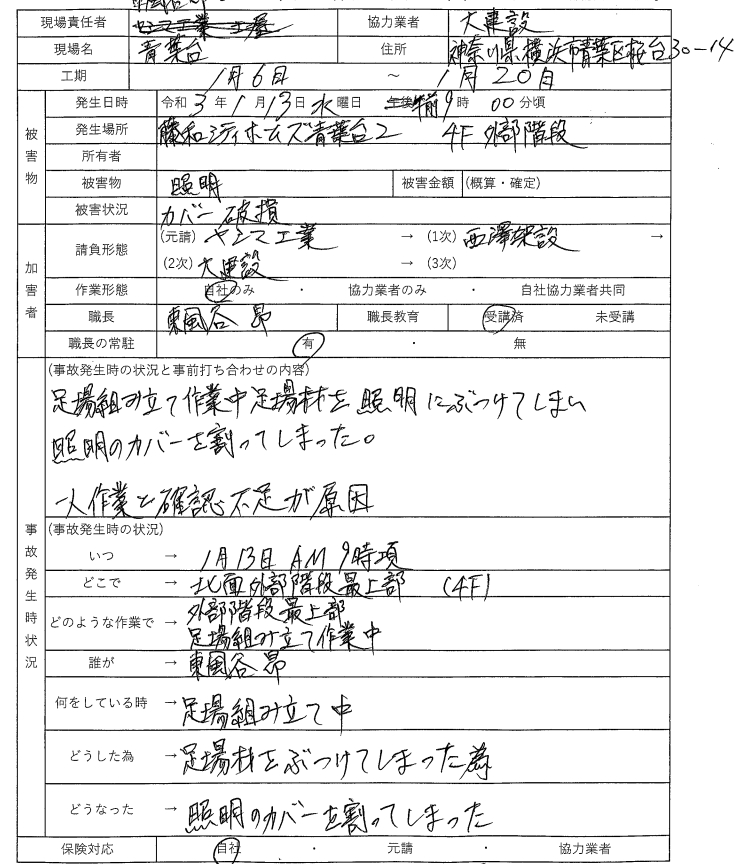 現場責任者 協力業者 大建設
現場名 青葉台 住所 神奈川県横浜市青葉区桜台30-14
工期 1月6日 ～ 1月20日
被害物
発生日時 令和3年1月13日水曜日 午前9時00分頃
発生場所 藤和シティホームズ青葉台2 4F 外部階段
所有者
被害物 照明 被害金額 (概算・確定)
被害状況 カバー破損
加害者
請負形態 (元請) ヤシマ工業 → (1次) 西澤架設 →
(2次) 大建設 → (3次)
作業形態 自社のみ ・ 協力業者のみ ・ 自社協力業者共同
職長 東風谷 昴 職長教育 受講済 未受講
職長の常駐 有 ・ 無
事故発生時状況
(事故発生時の状況と事前打ち合わせの内容)
足場組み立て作業中足場材を照明にぶつけてしまい
照明のカバーを割ってしまった。
一人作業と確認不足が原因
(事故発生時の状況)
いつ → 1月13日 AM 9時項
どこで → 北面外部階段最上部 (4F)
どのような作業で → 外部階段最上部
足場組み立て作業中
誰が → 東風谷 昴
何をしている時 → 足場組み立て中
どうした為 → 足場材をぶつけてしまった為
どうなった → 照明のカバーを割ってしまった
保険対応 自社 ・ 元請 ・ 協力業者